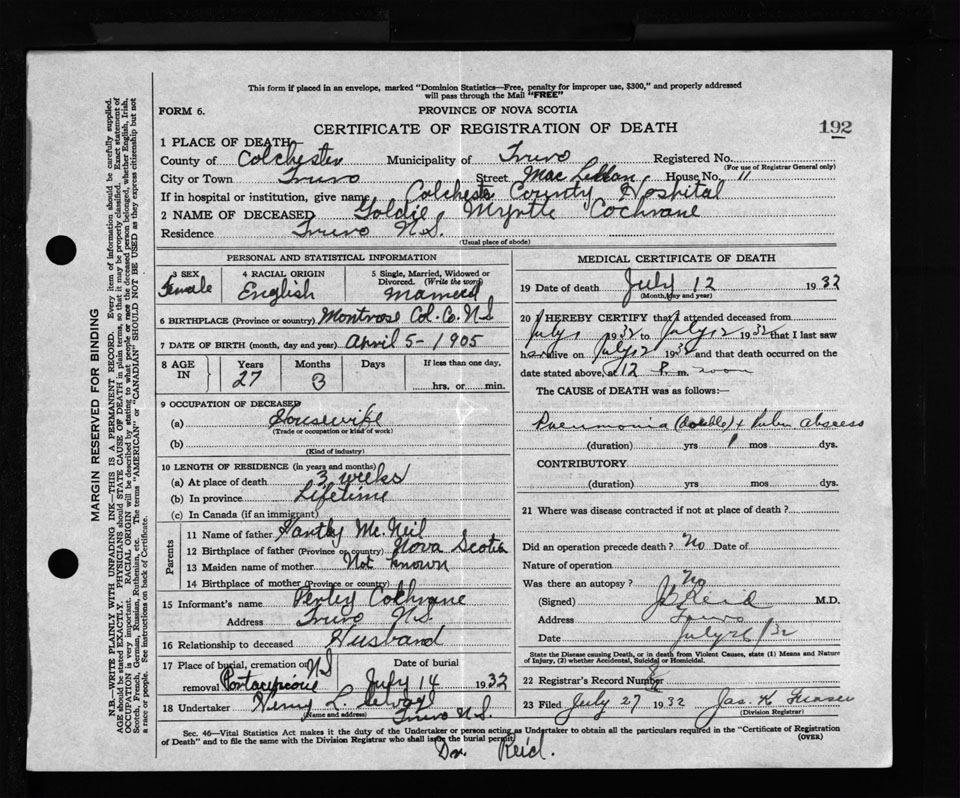 This form if placed in an envelope, marked "Dominion Statistics—Free, penalty for improper use, $300," and properly addressed
will pass through the Mail "FREE"
FORM 6.
PROVINCE OF NOVA SCOTIA
CERTIFICATE OF REGISTRATION OF DEATH
192
1 PLACE OF DEATH
County of Colchester Municipality of Truro Registered No.
(For use of Registrar General only)
City or Town Truro Street MacLellan House No. 11
If in hospital or institution, give name Colchester County Hospital
2 NAME OF DECEASED Goldie Myrtle Cochrane
Residence Truro N.S.
(Usual place of abode)
PERSONAL AND STATISTICAL INFORMATION
3 SEX Female
4 RACIAL ORIGIN English
5 Single, Married, Widowed or Divorced. (Write the word) Married
6 BIRTHPLACE (Province or country) Montrose Col. Co. N.S
7 DATE OF BIRTH (month, day and year) April 5-1905
8 AGE IN Years 27 Months 3 Days If less than one day, hrs. or min.
9 OCCUPATION OF DECEASED
(a) Housewife
(Trade or occupation or kind of work)
(b)
(Kind of industry)
10 LENGTH OF RESIDENCE (in years and months)
(a) At place of death 3 weeks
(b) In province Lifetime
(c) In Canada (if an immigrant)
Parents
11 Name of father McNeil
12 Birthplace of father (Province or country) Nova Scotia
13 Maiden name of mother Not known
14 Birthplace of mother (Province or country)
15 Informant's name Perley Cochrane
Address Truro N.S.
16 Relationship to deceased Husband
17 Place of burial, cremation or removal Portaupique N S
Date of burial July 14 1932
18 Undertaker Henry L.
(Name and address) Truro N.S.
MEDICAL CERTIFICATE OF DEATH
19 Date of death July 12 1932
(Month, day and year)
20 I HEREBY CERTIFY that I attended deceased from
July 1 1932 to July 12 1932 that I last saw
her alive on July 12 1932 and that death occurred on the
date stated above, at 12 P. m. noon
The CAUSE OF DEATH was as follows:—
Pneumonia (double) + abscess
(duration) yrs 1 mos dys.
CONTRIBUTORY
(duration) yrs mos dys.
21 Where was disease contracted if not at place of death?
Did an operation precede death? No Date of
Nature of operation
Was there an autopsy? No
(Signed) Reid M.D.
Address Truro
Date July 26/32
State the Disease causing Death, or in death from Violent Causes, state (1) Means and Nature
of Injury, (2) whether Accidental, Suicidal or Homicidal.
22 Registrar's Record Number
23 Filed July 27 1932 Jas K Fraser
(Division Registrar)
Sec. 46—Vital Statistics Act makes it the duty of the Undertaker or person acting as Undertaker to obtain all the particulars required in the "Certificate of Registration
of Death" and to file the same with the Division Registrar who shall issue the burial permit.
(OVER)
Dr. Reid.
MARGIN RESERVED FOR BINDING
N.B.—WRITE PLAINLY WITH UNFADING INK—THIS IS A PERMANENT RECORD. Every item of information should be carefully supplied.
AGE should be stated EXACTLY. PHYSICIANS should STATE CAUSE OF DEATH in plain terms, so that it may be properly classified. Exact statement of
OCCUPATION is very important. RACIAL ORIGIN will be described by stating to what people or race the deceased person belonged, whether English, Irish,
Scotch, French, German, Russian, Ruthenian, etc. The terms "AMERICAN" or "CANADIAN" SHOULD NOT BE USED as they express citizenship but not
a race or people. See instructions on back of Certificate.